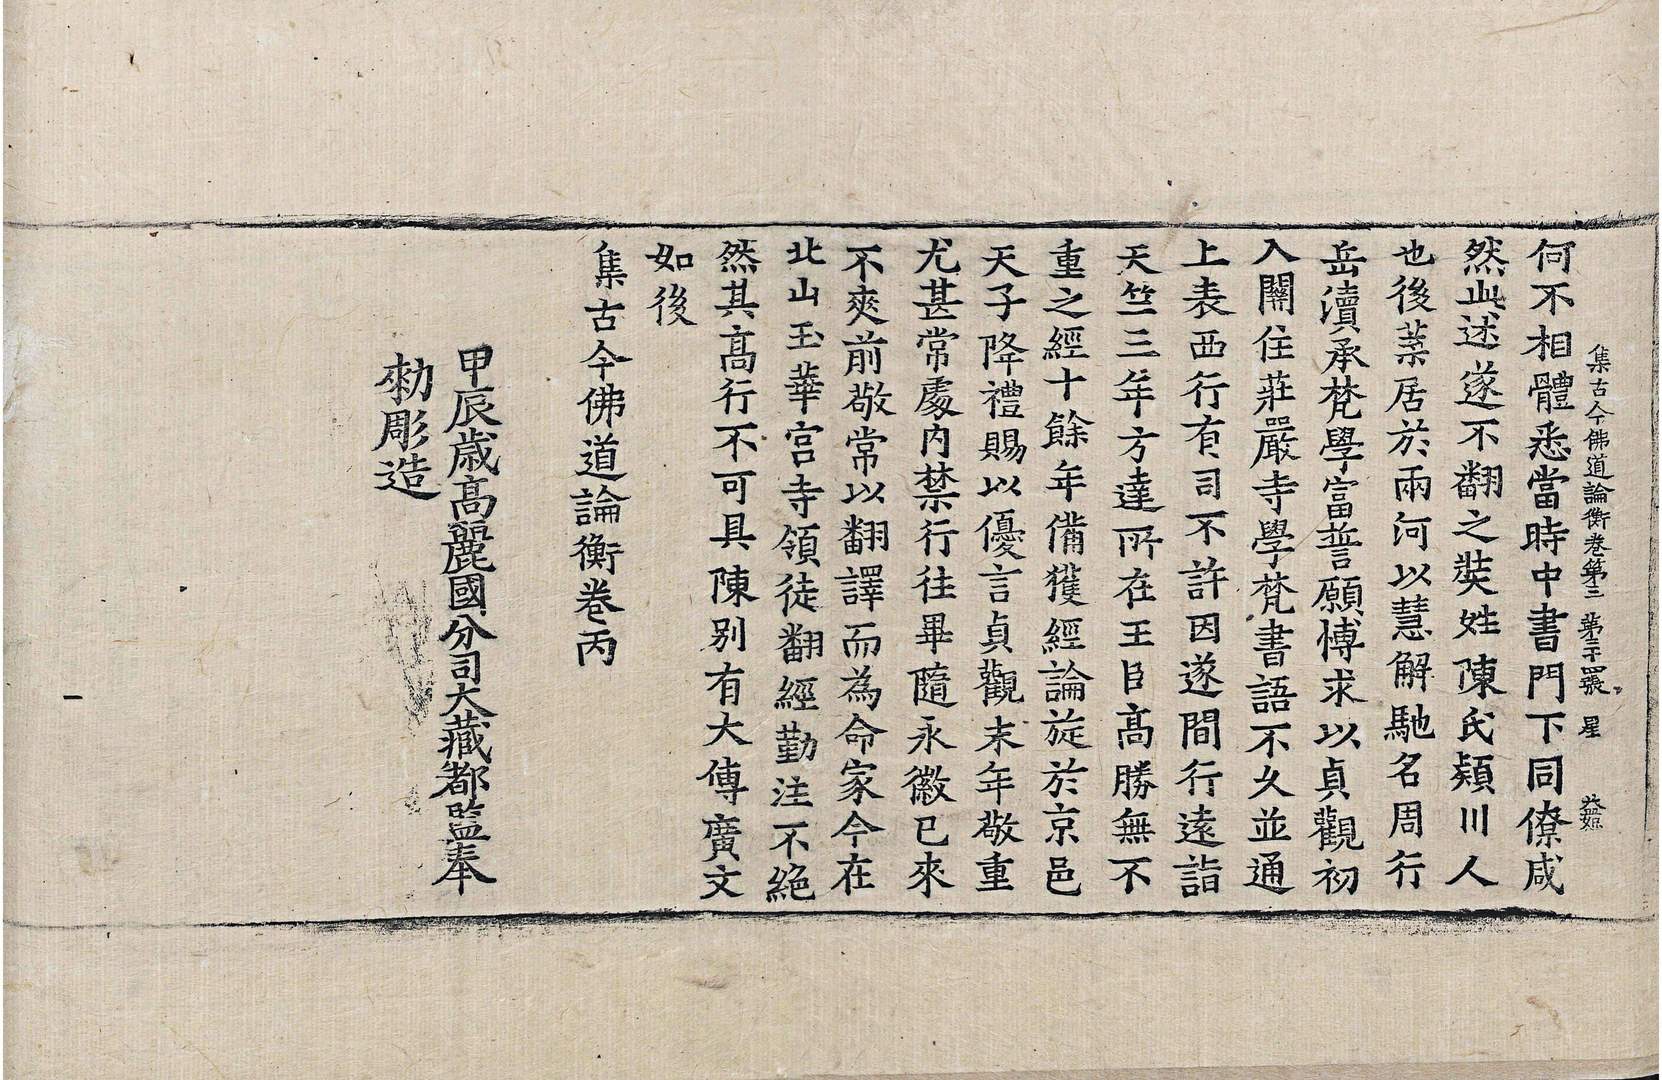 集古今佛道論衡卷第三　第三十四張　星
何不相體悉當時中書門下同僚咸
然此述遂不翻之奘姓陳氏潁川人
也後葉居於兩河以慧解馳名周行
岳瀆承梵學富誓願博求以貞觀初
入關住莊嚴寺學梵書語不久並通
上表西行有司不許因遂間行遠詣
天竺三年方達所在王臣高勝無不
重之經十餘年備獲經論旋於京邑
天子降禮賜以優言貞觀末年敬重
尤甚常處内禁行往畢隨永徽已來
不爽前敬常以翻譯而為命家今在
北山玉華宮寺領徒翻經勤注不絕
然其高行不可具陳別有大傳廣文
如後
集古今佛道論衡卷丙
甲辰歲高麗國分司大藏都監奉
勑彫造